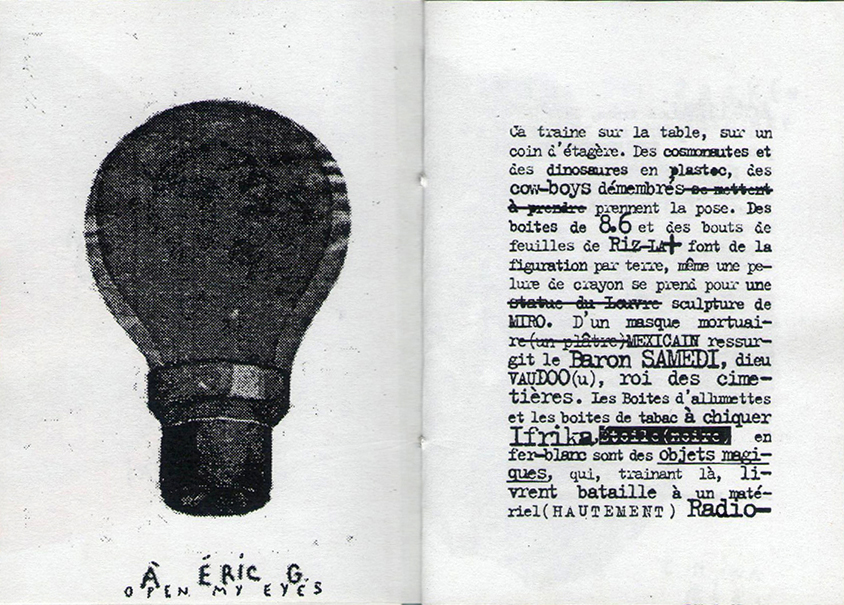 À ÉRIC G.
OPEN MY EYES
Ca traine sur la table, sur un
coin d'étagère. Des cosmonautes et
des dinosaures en plastoc, des
cow-boys démembrés se mettent
à prendre prennent la pose. Des
boites de 8.6 et des bouts de
feuilles de Riz-LA+ font de la
figuration par terre, même une pe-
lure de crayon se prend pour une
statue du Louvre sculpture de
MIRO. D'un masque mortuai-
re(un plâtre)MEXICAIN ressur-
git le Baron SAMEDI, dieu
VAUDOO(u), roi des cime-
tières. Les Boites d'allumettes
et les boites de tabac à chiquer
Ifrika étoile(noire) en
fer-blanc sont des objets magi-
ques, qui, trainant là, li-
vrent bataille à un maté-
riel(HAUTEMENT) Radio-